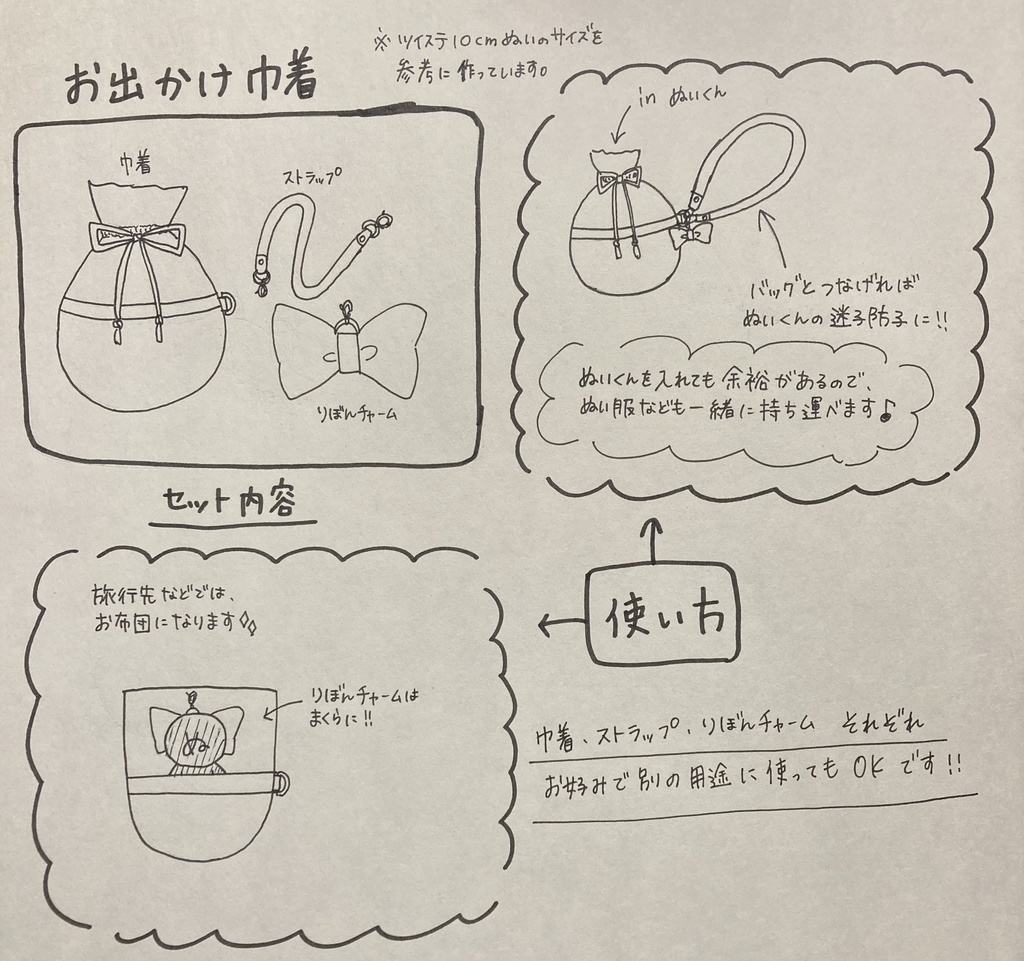 お出かけ巾着
※ ツイステ10cmぬいのサイズを
参考に作っています。
巾着
ストラップ
りぼんチャーム
セット内容
in ぬいくん
バッグとつなげれば
ぬいくんの迷子防子に!!
ぬいくんを入れても余裕があるので、
ぬい服なども一緒に持ち運べます♪
使い方
旅行先などでは、
お布団になります
りぼんチャームは
まくらに!!
ぬ
巾着、ストラップ、りぼんチャーム それぞれ
お好みで別の用途に使ってもOKです!!